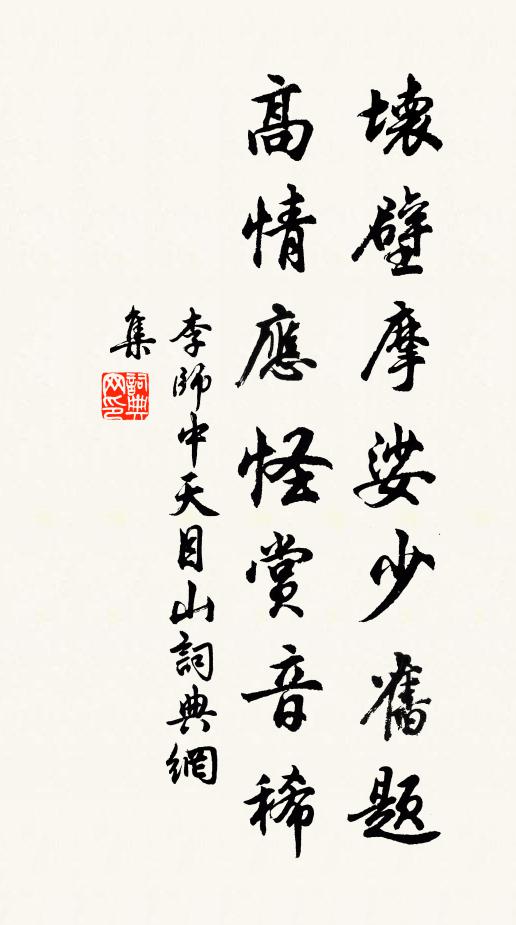 壞壁摩娑少舊題
高情應怪賞音稀
李師中天目山詞典網
集
詞典
网印